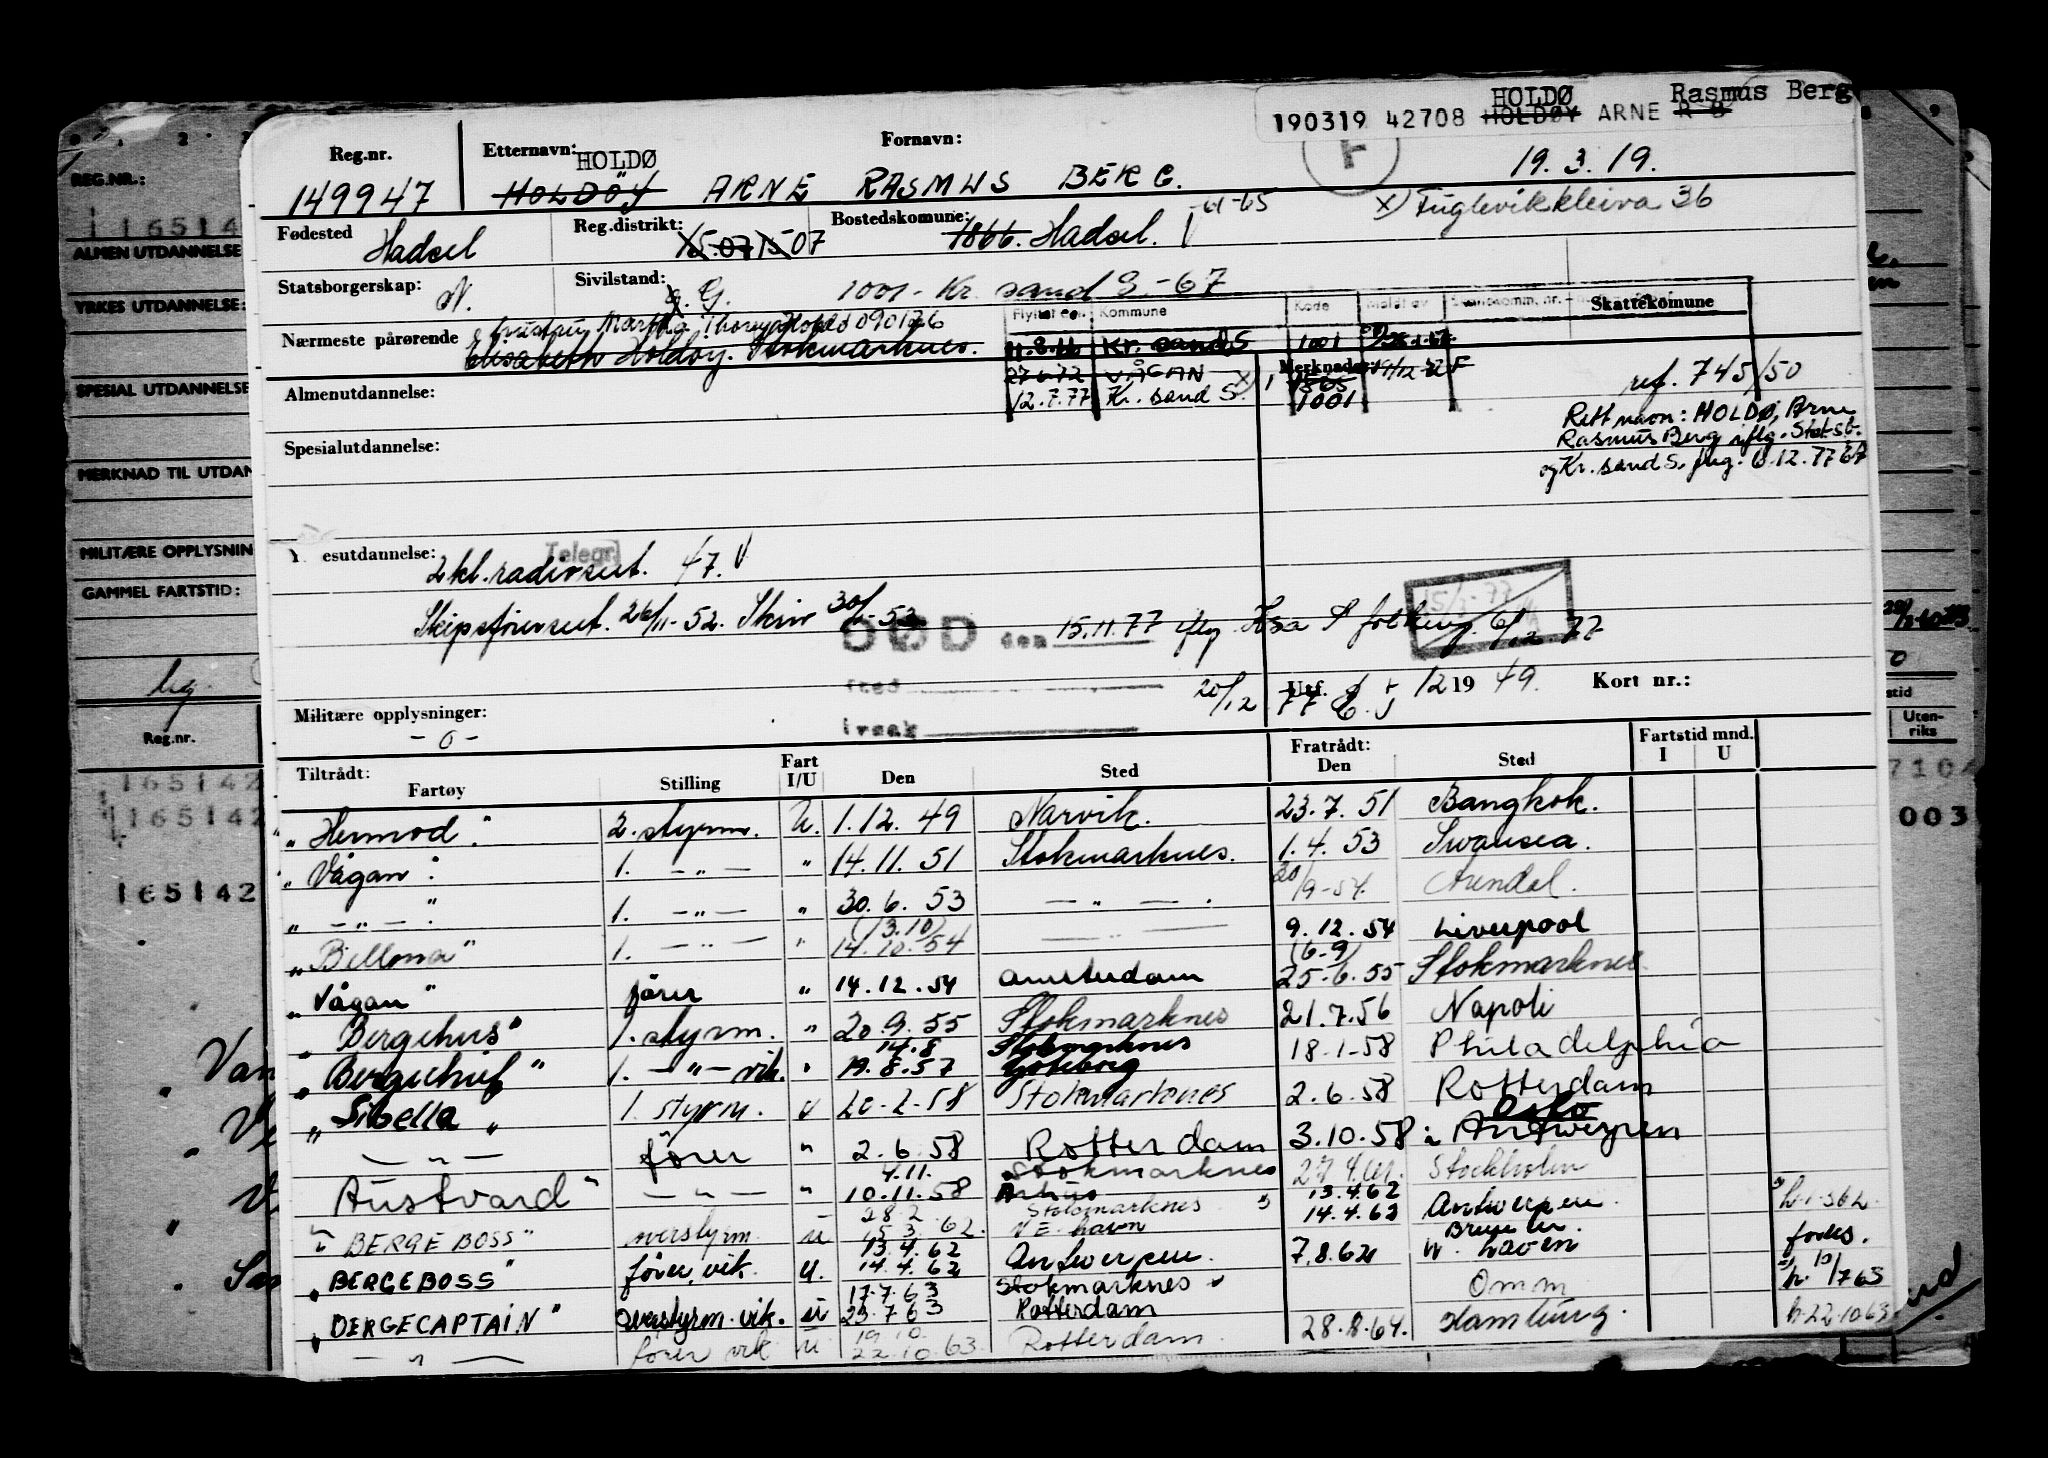 HOLDØ Rasmus Berg
190319 42708 HOLDØY ARNE R B
Reg.nr. Etternavn: HOLDØ Fornavn:
F 19.3.19.
149947 HOLDÖY ARNE RASMUS BERG.
x) Fuglevikkleiva 36
REG.NR.:
Fødested Hadsel Reg.distrikt: 15.07 15 07 Bostedskommune: 1866. Hadsel. -65
ALMEN UTDANNELSE
Statsborgerskap: N. Sivilstand: G. 1001 - Kr. sand S. - 67
YRKES UTDANNELSE:
Flyttet den Kommune Kode Meldt av Skattekomune
Nærmeste pårørende Hustru Martha Holdø 090126
Elisabeth Holdøy. Stokmarknes.
11.8.66 Kr. sand S 1001
27.6.72 VÅGAN 1865 Merknader:
SPESIAL UTDANNELSE
Almenutdannelse: 12.7.77 Kr. sand S. x) 1001 ref. 745/50
Rett navn: HOLDØ, Arne
Rasmus Berg iflg. Stat.sb.
og Kr. sand S. flg. 6.12.77
Spesialutdannelse:
MERKNAD TIL UTDAN
MILITÆRE OPPLYSNIN
Y esutdannelse: Telegr.
2 kl. radiosert. 47.
GAMMEL FARTSTID:
Skipsførersert. 26/11-52. Skriv 30/ -53
DØD den 15.11.77 iflg Krsa S folkereg. 6/12 77
sted 20/12 77
Utf. 12 19 49. Kort nr.:
Militære opplysninger: - 0 -
årsak
Reg.nr.
Tiltrådt: Fartøy Stilling Fart I/U Den Sted Fratrådt: Den Sted Fartstid mnd. I U
165142
"Hermod". 2. styrm. U. 1.12.49 Narvik. 23.7.51 Bangkok.
"Vågan". 1. - " - " 14.11.51 Stokmarknes. 1.4.53 Swansea.
" - " - " 1. - " - " 30.6.53 - " - . 20/9-54. Arendal.
"Bellona" 1. - " - " (13.10) 14.10.54 - 9.12.54 Liverpool
"Vågan" fører " 14.12.54 Amsterdam (6.9) 25.6.55 Stokmarknes
"Bergehus" 1. styrm. " 20.9.55 Stokmarknes 21.7.56 Napoli
"Bergechief" 1. - " - vik. " 14.8 19.8.57 Stokmarknes Göteborg 18.1-58 Philadelphia
"Sibella" 1. styrm. U 20.2.58 Stokmarknes 2.6.58 Rotterdam
- " - fører " 2.6.58 Rotterdam 3.10.58 Oslo Antwerpen
"Austvard" - " - " 4.11. 10.11.58 Stokmarknes Århus Stockholm
"BERGE BOSS" overstyrm. U 28.2 5.3.62. Stokmarknes V.E. havn 13.4.62 14.4.62 Antwerpen h. 1-362
"BERGEBOSS" fører, vik. U. 13.4.62 14.4.62 Antwerpen. 7.8.62 W. haven fodes.
"BERGECAPTAIN" overstyrm. vik. U 17.7.63 23.7.63 Stokmarknes Rotterdam Omm
- " - fører vik U 19.10. 22.10.63 Rotterdam. 28.8.64. Hamburg. h-22.1063
stid
Uten-
riks
7104
003